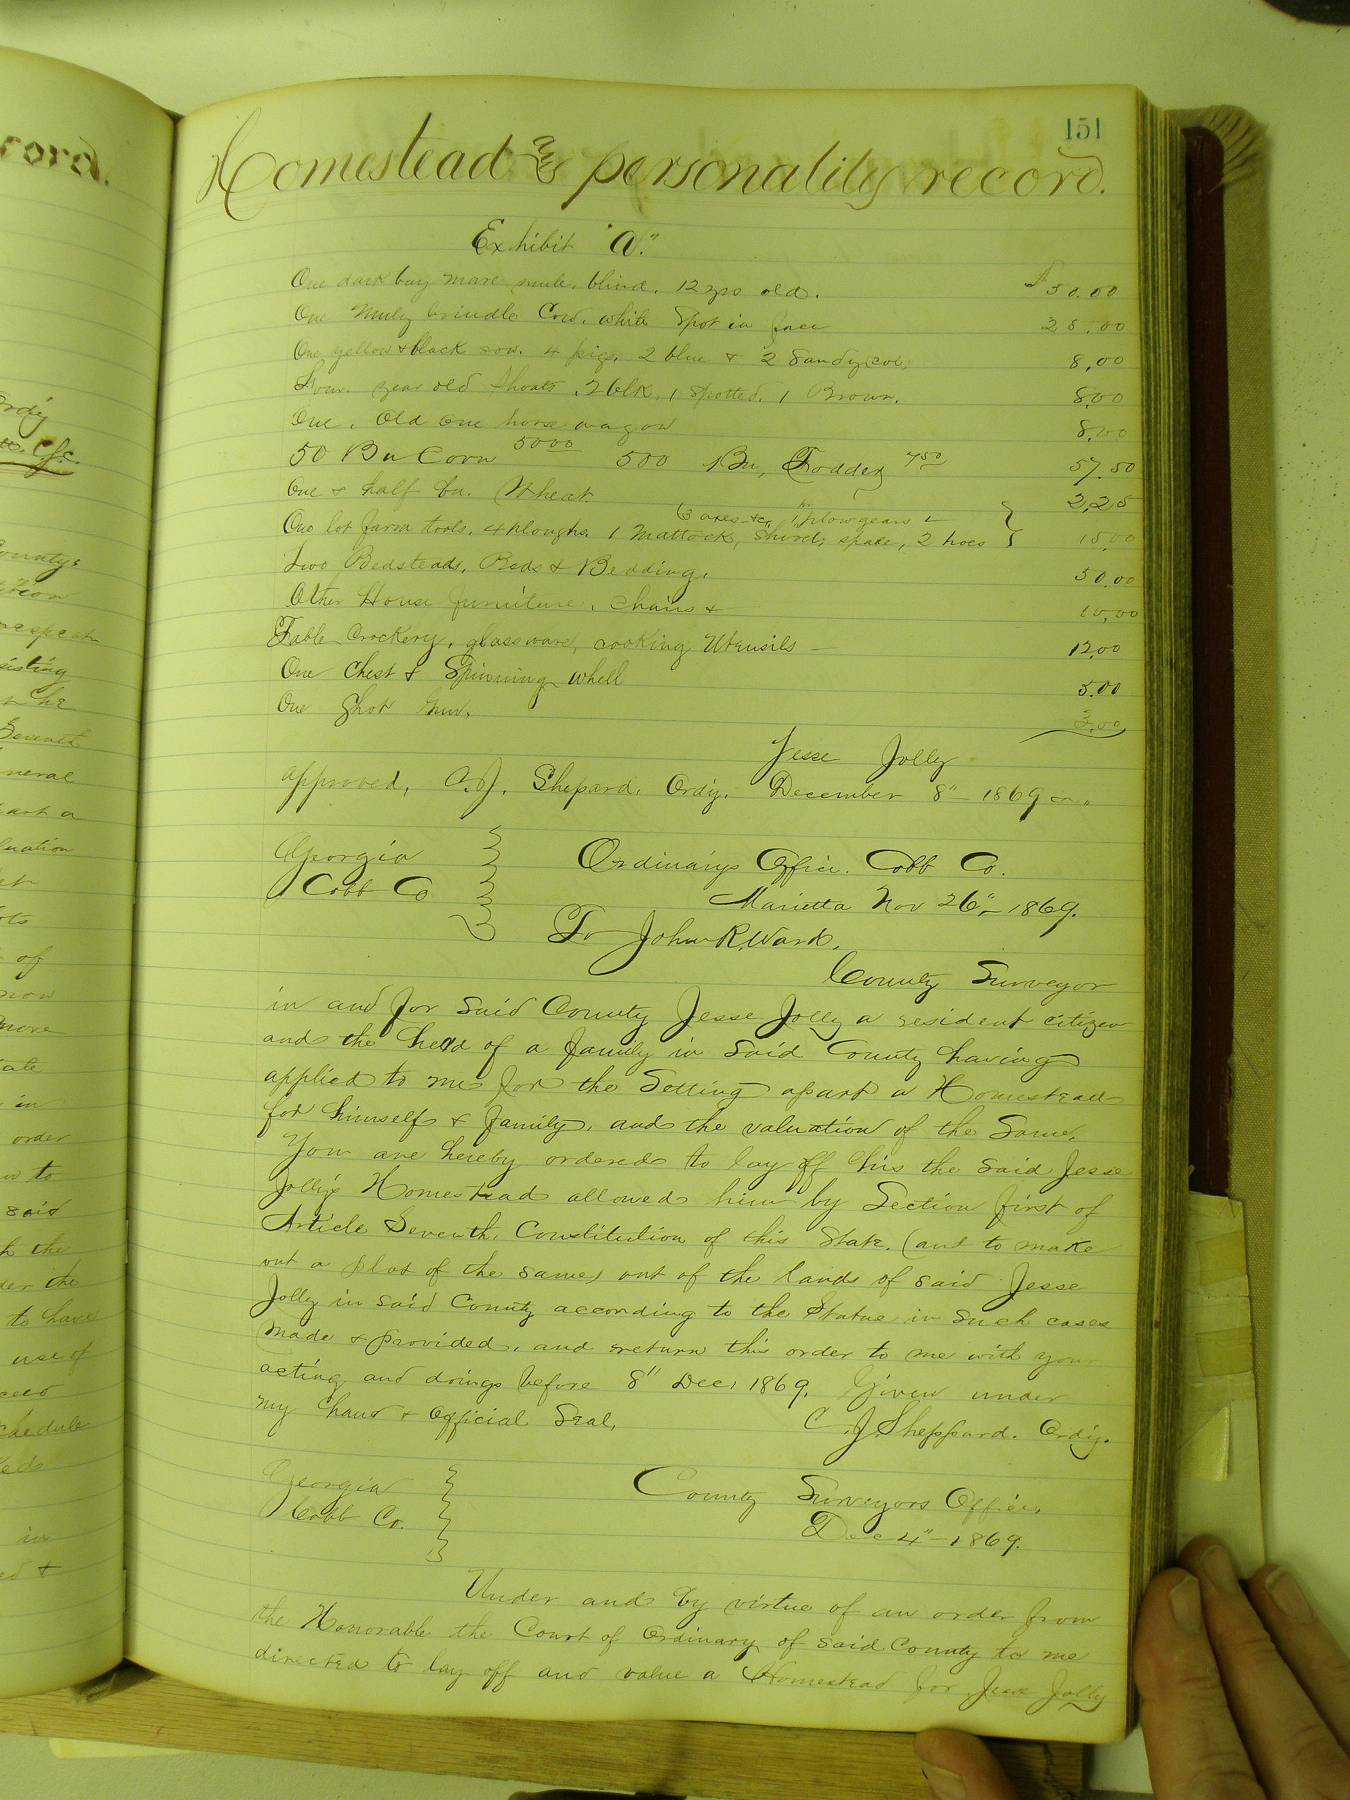 151
Homestead & personality record.
Exhibit "A."
One dark bay mare mule, blind, 12 yrs old. $50.00
One Muley brindle Cow, white Spot in face 25.00
One yellow & black sow. 4 pigs, 2 blue & 2 Sandy col. 8,00
Four year old Shoats, 2 blk, 1 Spotted, 1 Brown. 8,00
One, Old one horse wagon 8,00
50 Bu Corn 50 00 500 Bu, Fodder 7 50 57.50
One & half bu. Wheat 2,25
3 axes &c, plow gears &
One lot farm tools, 4 ploughs, 1 Mattock, Shovel, spade, 2 hoes 15,00
Two Bedsteads, Beds & Bedding, 50,00
Other House furniture, Chairs & 10,00
Table Crockery, glassware, cooking Utensils — 12,00
One Chest & Spinning whell 5.00
One Shot Gun, 3,00
Jesse Jolly
approved, C.J. Shepard, Ordy. December 8" 1869
Georgia
Cobb Co
Ordinarys Office. Cobb Co.
Marietta Nov 26" 1869.
To John R. Ward,
County Surveyor
in and for Said County Jesse Jolly a resident citizen
and the head of a family in Said County having
applied to me for the Setting apart a Homestead
for himself & family, and the valuation of the Same,
You are hereby ordered to lay off his the said Jesse
Jolly's Homestead allowed him by Section first of
Article Seventh, Constitution of this State, (and to make
out a plat of the same) out of the lands of said Jesse
Jolly in said County according to the Statue in such cases
made & provided, and return this order to me with your
acting and doings before 8" Dec, 1869. Given under
my hand & Official Seal,
C. J. Sheppard. Ordy.
Georgia
Cobb Co.
County Surveyors Office,
Dec 4" 1869.
Under and by virtue of an order from
the Honorable the Court of Ordinary of said County to me
directed to lay off and value a Homestead for Jesse Jolly